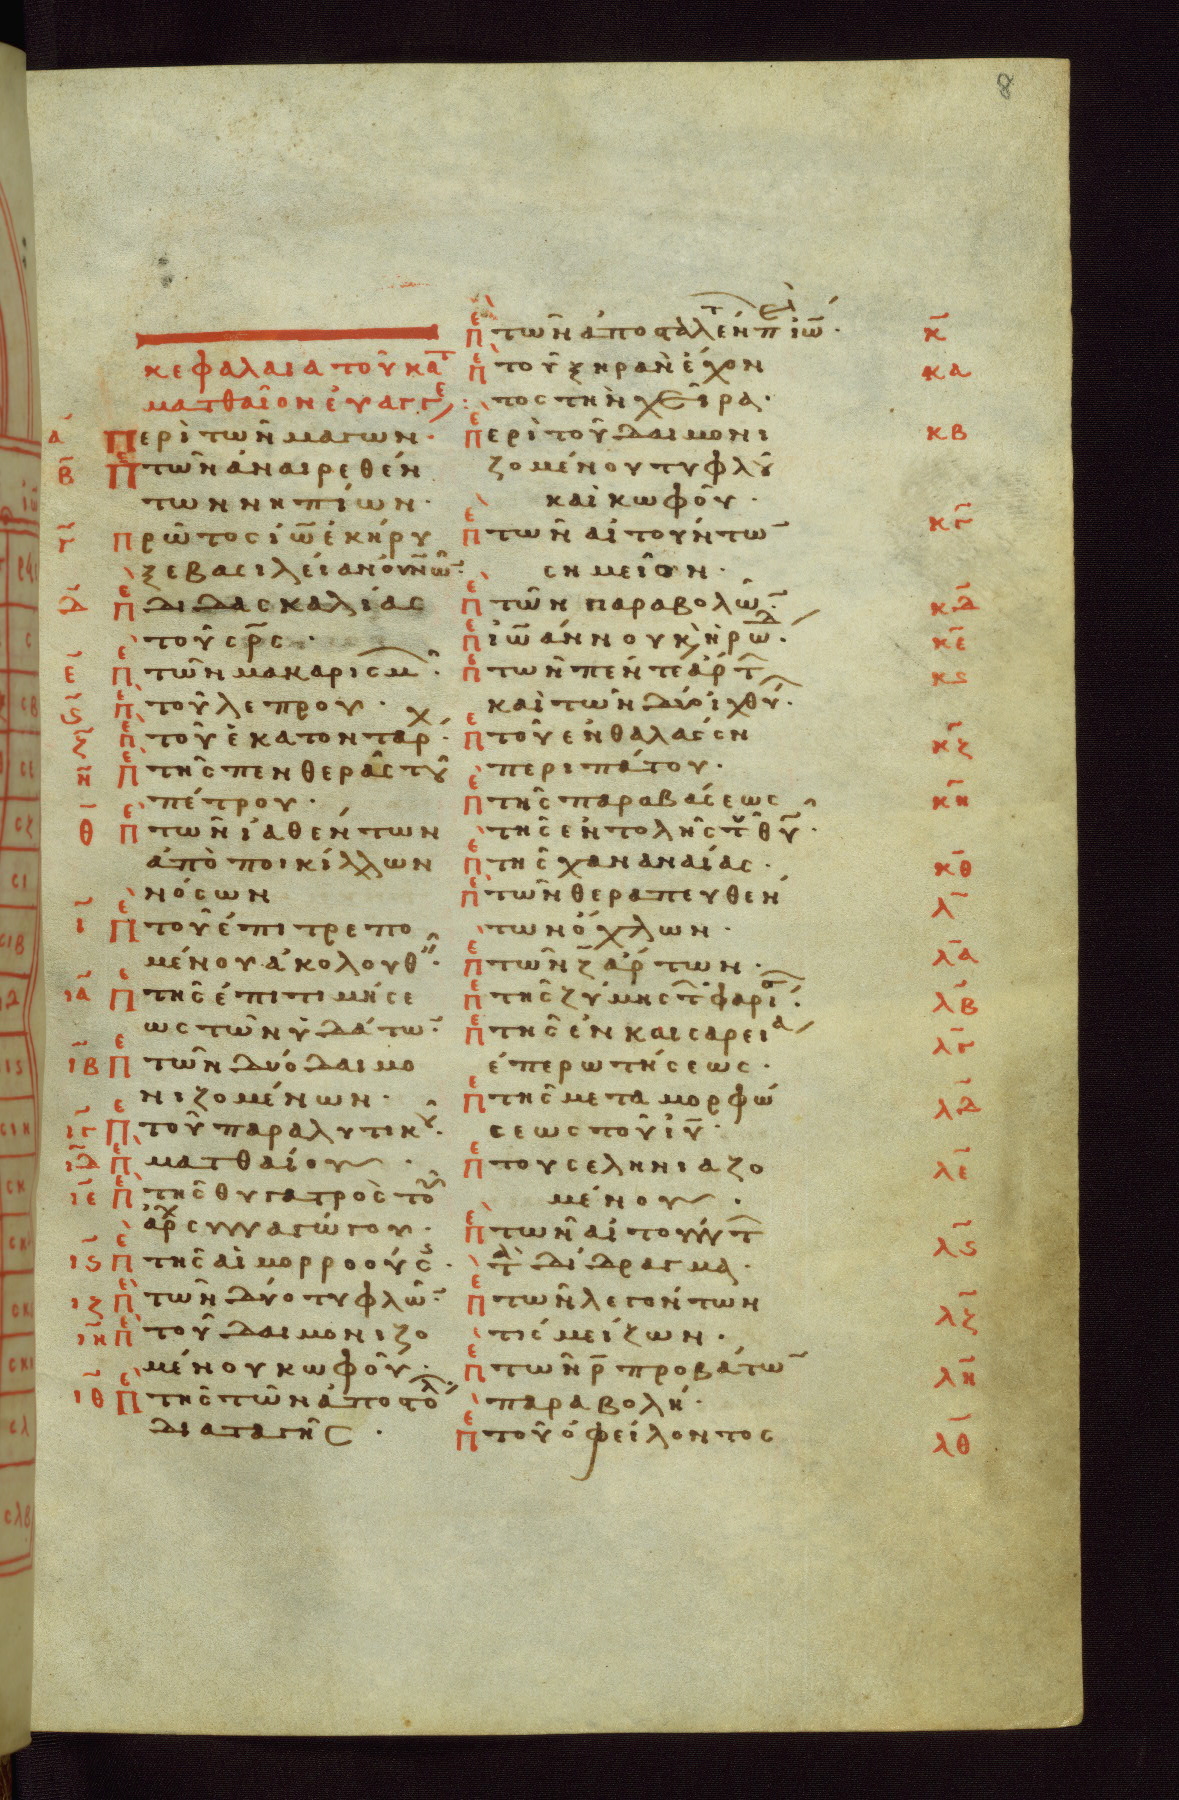 8
κεφάλαια τοῦ κατ
ματθαῖον ἐυαγγε
α Περὶ τῶν μάγων·
β πε τῶν ἀναιρεθέν
των νηπίων·
γ πρῶτος ιω ἐκήρυ
ξε βασιλείαν ουνων·
δ πε διδασκαλίας
τοῦ σρς·
ε πε τῶν μακαρισμ·
ϛ πε τοῦ λεπροῦ·
ζ πε τοῦ ἑκατονταρχ·
η πε τῆς πενθερᾶς τοῦ
πέτρου·
θ πε τῶν ἰαθέντων
ἀπὸ ποικίλλων
νόσων
ι πε τοῦ ἐπιτρεπο
μένου ἀκολουθ·
ια πε τῆς ἐπιτιμήσε
ως τῶν ὑδάτω·
ιβ πε τῶν δύο δαιμο
νιζομένων·
ιγ πε τοῦ παραλυτικοῦ·
ιδ πε ματθαίου·
ιε πε τῆς θυγατρὸς τοῦ
ἀρχσυναγώγου·
ιϛ πε τῆς αἱμορροούσ·
ιζ πε τῶν δύο τυφλῶ·
ιη πε τοῦ δαιμονιζο
μένου κωφοῦ·
ιθ πε τῆς τῶν ἀποστόλ
διαταγῆς·
πε τῶν ἀποσταλέντ ιω· κ
πε τοῦ ξηρὰν ἔχον κα
τος τὴν χεῖρα·
περὶ τοῦ δαιμονι κβ
ζομένου τυφλοῦ
καὶ κωφοῦ·
πε τῶν αἰτούντω κγ
σημεῖον·
πε τῶν παραβολῶ· κδ
πε ιωάννου κ ηρωδ· κε
πε τῶν πέντε ἄρτ κϛ
καὶ τῶν δύο ἰχθύ·
πε τοῦ ἐν θαλάσση κζ
περιπάτου·
πε τῆς παραβάσεως κη
τῆς ἐντολῆς τ θυ·
πε τῆς χαναναίας· κθ
πε τῶν θεραπευθέν λ
των ὄχλων·
πε τῶν ζ ἄρτων· λα
πε τῆς ζύμης τ φαρισ· λβ
πε τῆς ἐν καισαρεία λγ
ἐπερωτήσεως·
πε τῆς μεταμορφώ λδ
σεως τοῦ ιυ·
πε τοῦ σεληνιαζο λε
μένου·
πε τῶν αἰτούντ λϛ
τὰ δίδραγμα·
πε τῶν λεγόντων λζ
τίς μείζων·
πε τῶν ρ προβάτω λη
παραβολή·
πε τοῦ ὀφείλοντος λθ